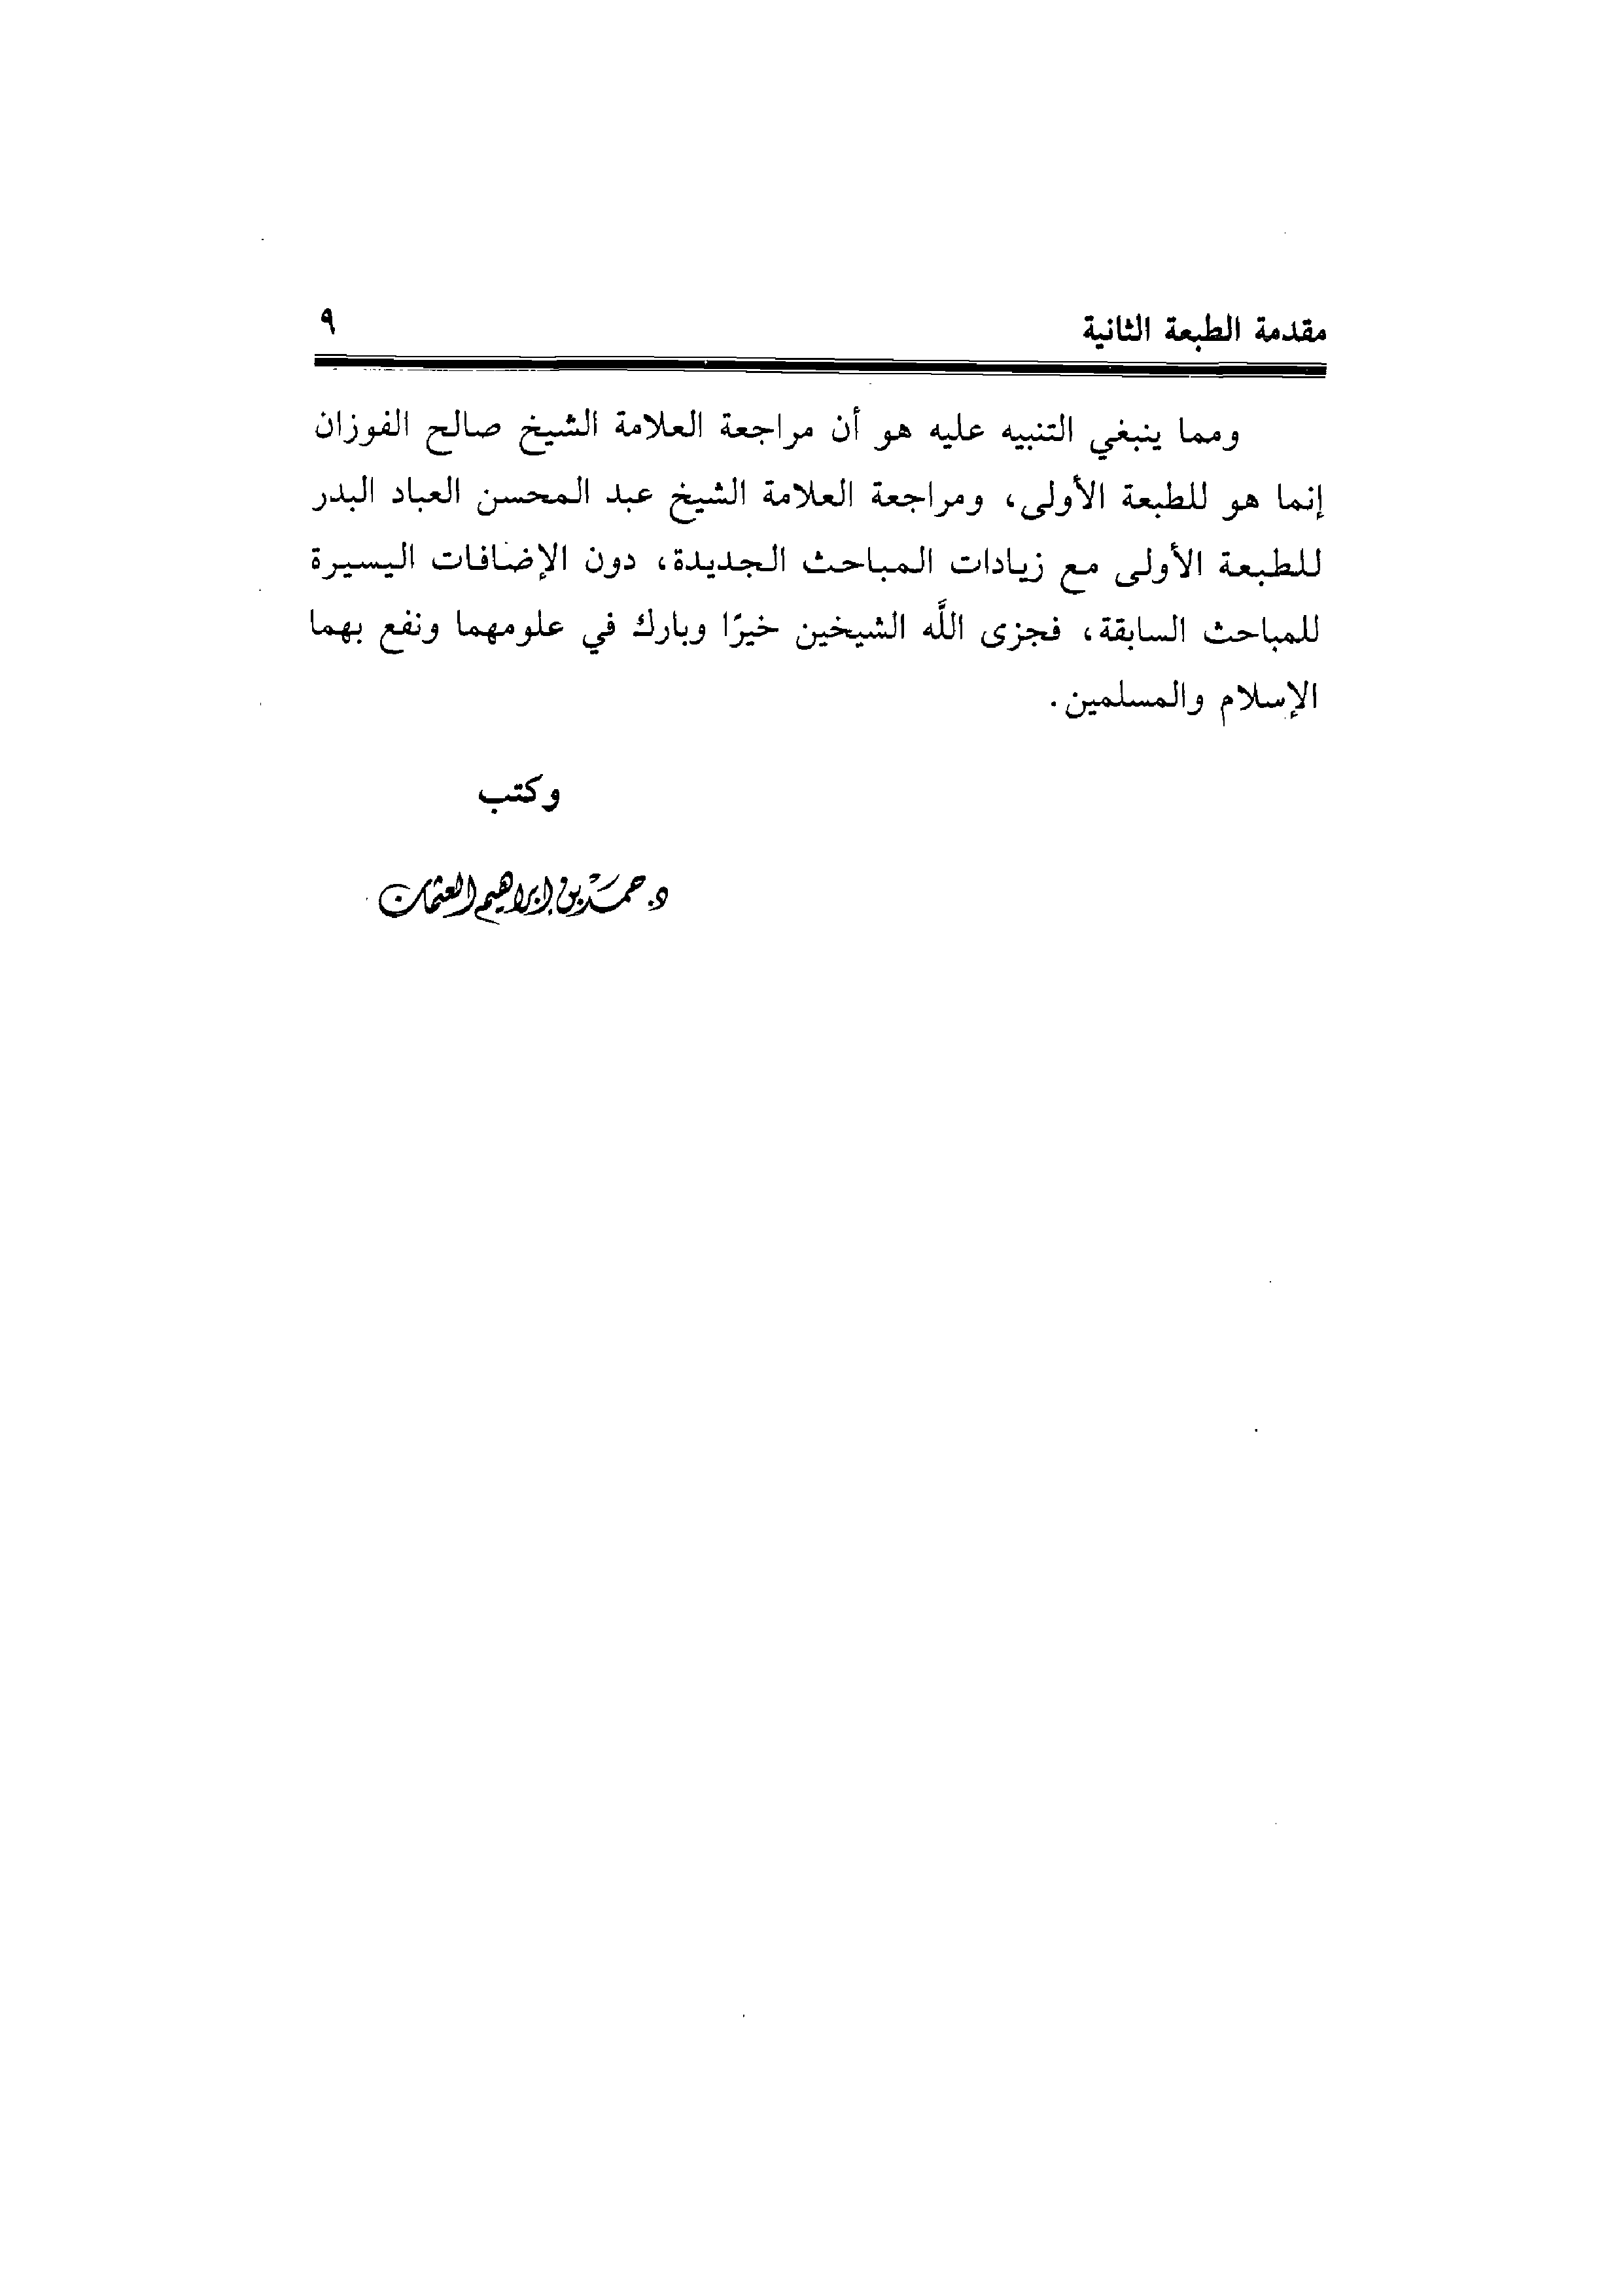 مقدمة الطبعة الثانية ٩
ومما ينبغي التنبيه عليه هو أن مراجعة العلامة الشيخ صالح الفوزان
إنما هو للطبعة الأولى، ومراجعة العلامة الشيخ عبد المحسن العباد البدر
للطبعة الأولى مع زيادات المباحث الجديدة، دون الإضافات اليسيرة
للمباحث السابقة، فجزى اللَّه الشيخين خيرًا وبارك في علومهما ونفع بهما
الإسلام والمسلمين.
وكتب
د. حمد بن إبراهيم العثمان